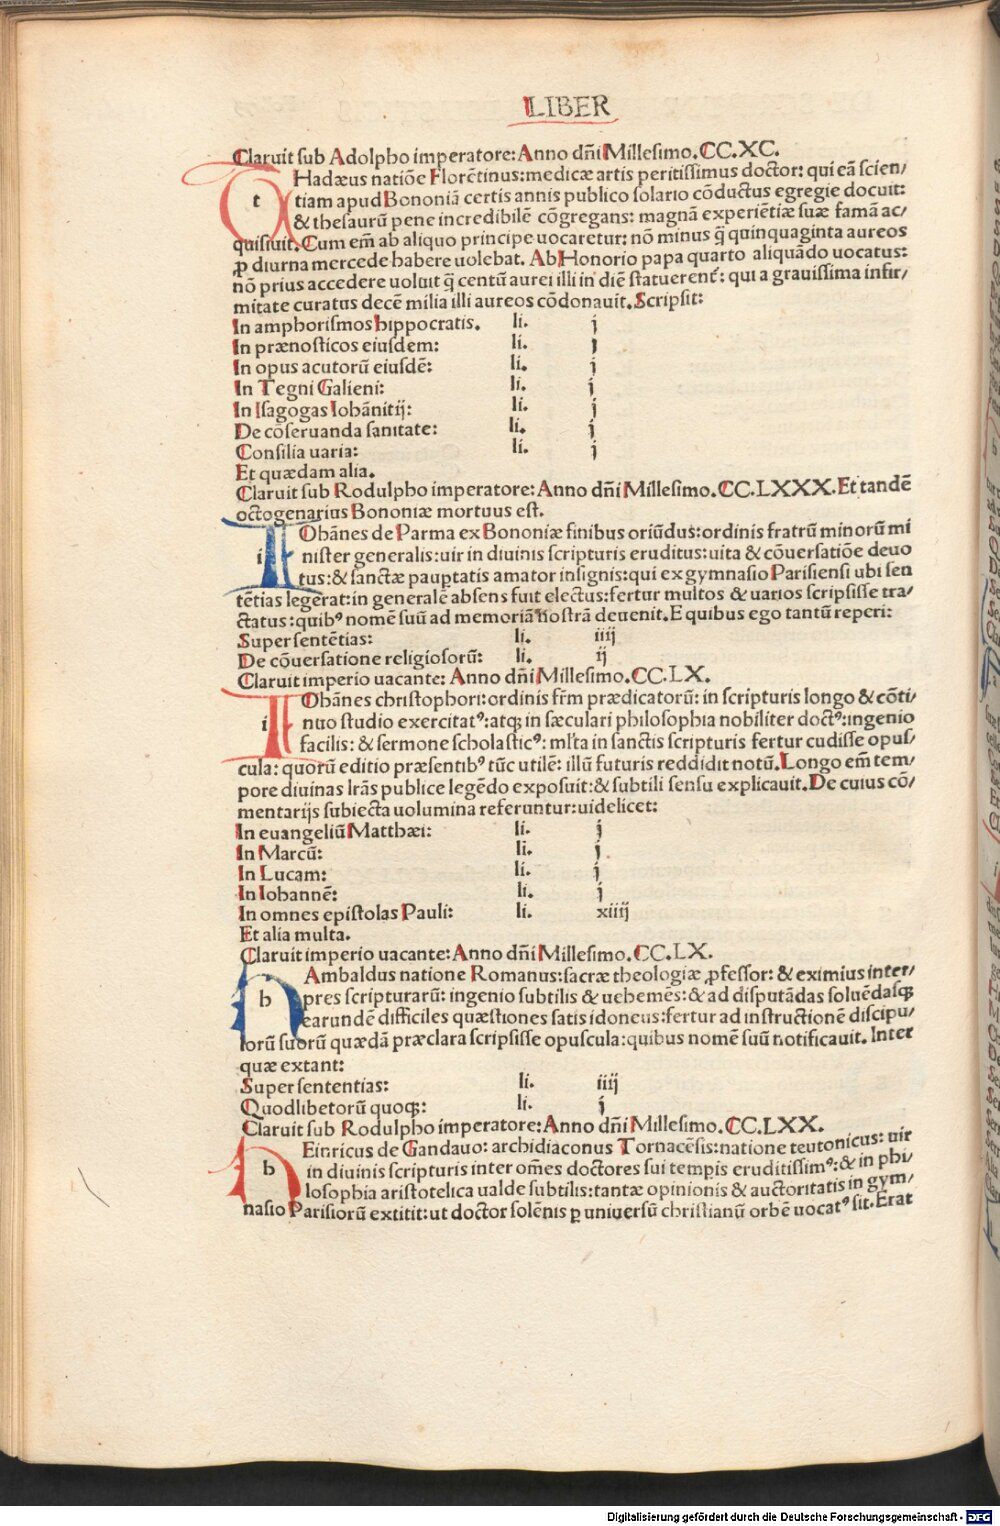 LIBER
Claruit sub Adolpho imperatore: Anno dñi Millesimo.CC.XC.
t Hadæus natiõe Florẽtinus: medicæ artis peritissimus doctor: qui eã scien/
tiam apud Bononiã certis annis publico solario cõductus egregie docuit:
& thesaurũ pene incredibilẽ cõgregans: magnã experiẽtiæ suæ famã ac/
quisiuit. Cum em̃ ab aliquo principe uocaretur: nõ minus q̃ quinquaginta aureos
ꝓ diurna mercede habere uolebat. Ab Honorio papa quarto aliquãdo uocatus:
nõ prius accedere uoluit q̃ centũ aurei illi in diẽ statuerent̃: qui a grauissima infir/
mitate curatus decẽ milia illi aureos cõdonauit. Scripsit:
In amphorismos hippocratis. li. j
In prænosticos eiusdem: li. j
In opus acutorũ eiusdẽ: li. j
In Tegni Galieni: li. j
In Isagogas Iohãnitij: li. j
De cõseruanda sanitate: li. j
Consilia uaria: li. j
Et quædam alia.
Claruit sub Rodulpho imperatore: Anno dñi Millesimo.CC.LXXX. Et tandẽ
octogenarius Bononiæ mortuus est.
i Ohãnes de Parma ex Bononiæ finibus oriũdus: ordinis fratrũ minorũ mi
nister generalis: uir in diuinis scripturis eruditus: uita & cõuersatiõe deuo
tus: & sanctæ pauptatis amator insignis: qui ex gymnasio Parisiensi ubi sen
tẽtias legerat: in generalẽ absens fuit electus: fertur multos & uarios scripsisse tra/
ctatus: quibꝰ nomẽ suũ ad memoriã nostrã deuenit. E quibus ego tantũ reperi:
Super sentẽtias: li. iiij
De cõuersatione religiosorũ: li. ij
Claruit imperio uacante: Anno dñi Millesimo.CC.LX.
i Ohãnes christophori: ordinis fr̃m prædicatorũ: in scripturis longo & cõti/
nuo studio exercitatꝰ: atqꝫ in sæculari philosophia nobiliter doctꝰ: ingenio
facilis: & sermone scholasticꝰ: ml̃ta in sanctis scripturis fertur cudisse opus/
cula: quorũ editio præsentibꝰ tũc utilẽ: illũ futuris reddidit notũ. Longo em̃ tem/
pore diuinas lr̃as publice legẽdo exposuit: & subtili sensu explicauit. De cuius cõ/
mentarijs subiecta uolumina referuntur: uidelicet:
In euangeliũ Matthæi: li. j
In Marcũ: li. j
In Lucam: li. j
In Iohannẽ: li. j
In omnes epistolas Pauli: li. xiiij
Et alia multa.
Claruit imperio uacante: Anno dñi Millesimo.CC.LX.
h Ambaldus natione Romanus: sacræ theologiæ ꝓfessor: & eximius inter/
pres scripturarũ: ingenio subtilis & uehemẽs: & ad disputãdas soluẽdasqꝫ
earundẽ difficiles quæstiones satis idoneus: fertur ad instructionẽ discipu/
lorũ suorũ quædã præclara scripsisse opuscula: quibus nomẽ suũ notificauit. Inter
quæ extant:
Super sententias: li. iiij
Quodlibetorũ quoqꝫ: li. j
Claruit sub Rodulpho imperatore: Anno dñi Millesimo.CC.LXX.
h Einricus de Gandauo: archidiaconus Tornacẽsis: natione teutonicus: uir
in diuinis scripturis inter om̃es doctores sui temp̱is eruditissimꝰ: & in phi/
losophia aristotelica ualde subtilis: tantæ opinionis & auctoritatis in gym/
nasio Parisiorũ extitit: ut doctor solẽnis ꝑ uniuersũ christianũ orbẽ uocatꝰ sit. Erat
Digitalisierung gefördert durch die Deutsche Forschungsgemeinschaft - DFG